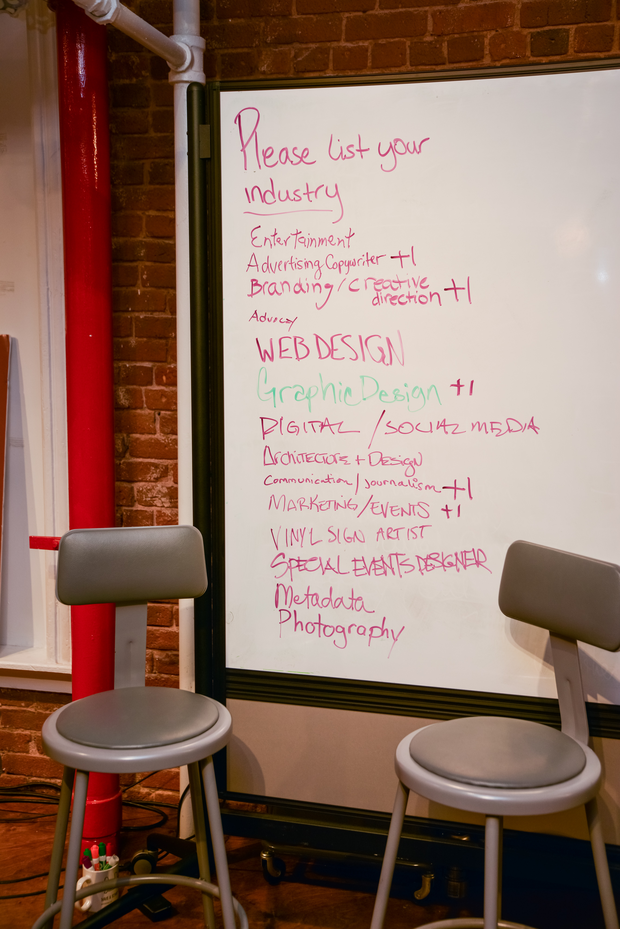 Please list your
industry
Entertainment
Advertising Copywriter +1
Branding/creative
direction +1
Advocacy
WEB DESIGN
Graphic Design +1
DIGITAL / SOCIAL MEDIA
ARCHITECTURE + DESIGN
Communication / journalism +1
MARKETING/EVENTS +1
VINYL SIGN ARTIST
SPECIAL EVENTS DESIGNER
Metadata
Photography